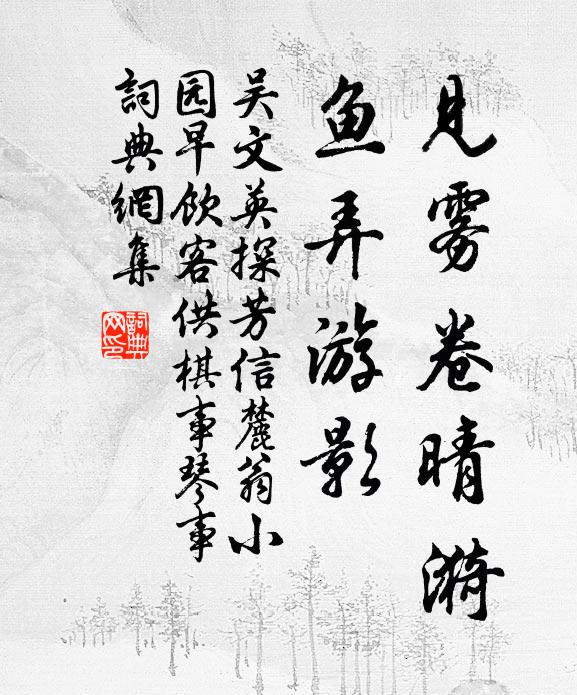 见雾卷晴漪
鱼弄游影
吴文英探芳信麓翁小
园早饮客供棋事琴事
词典網集
詞典
网印